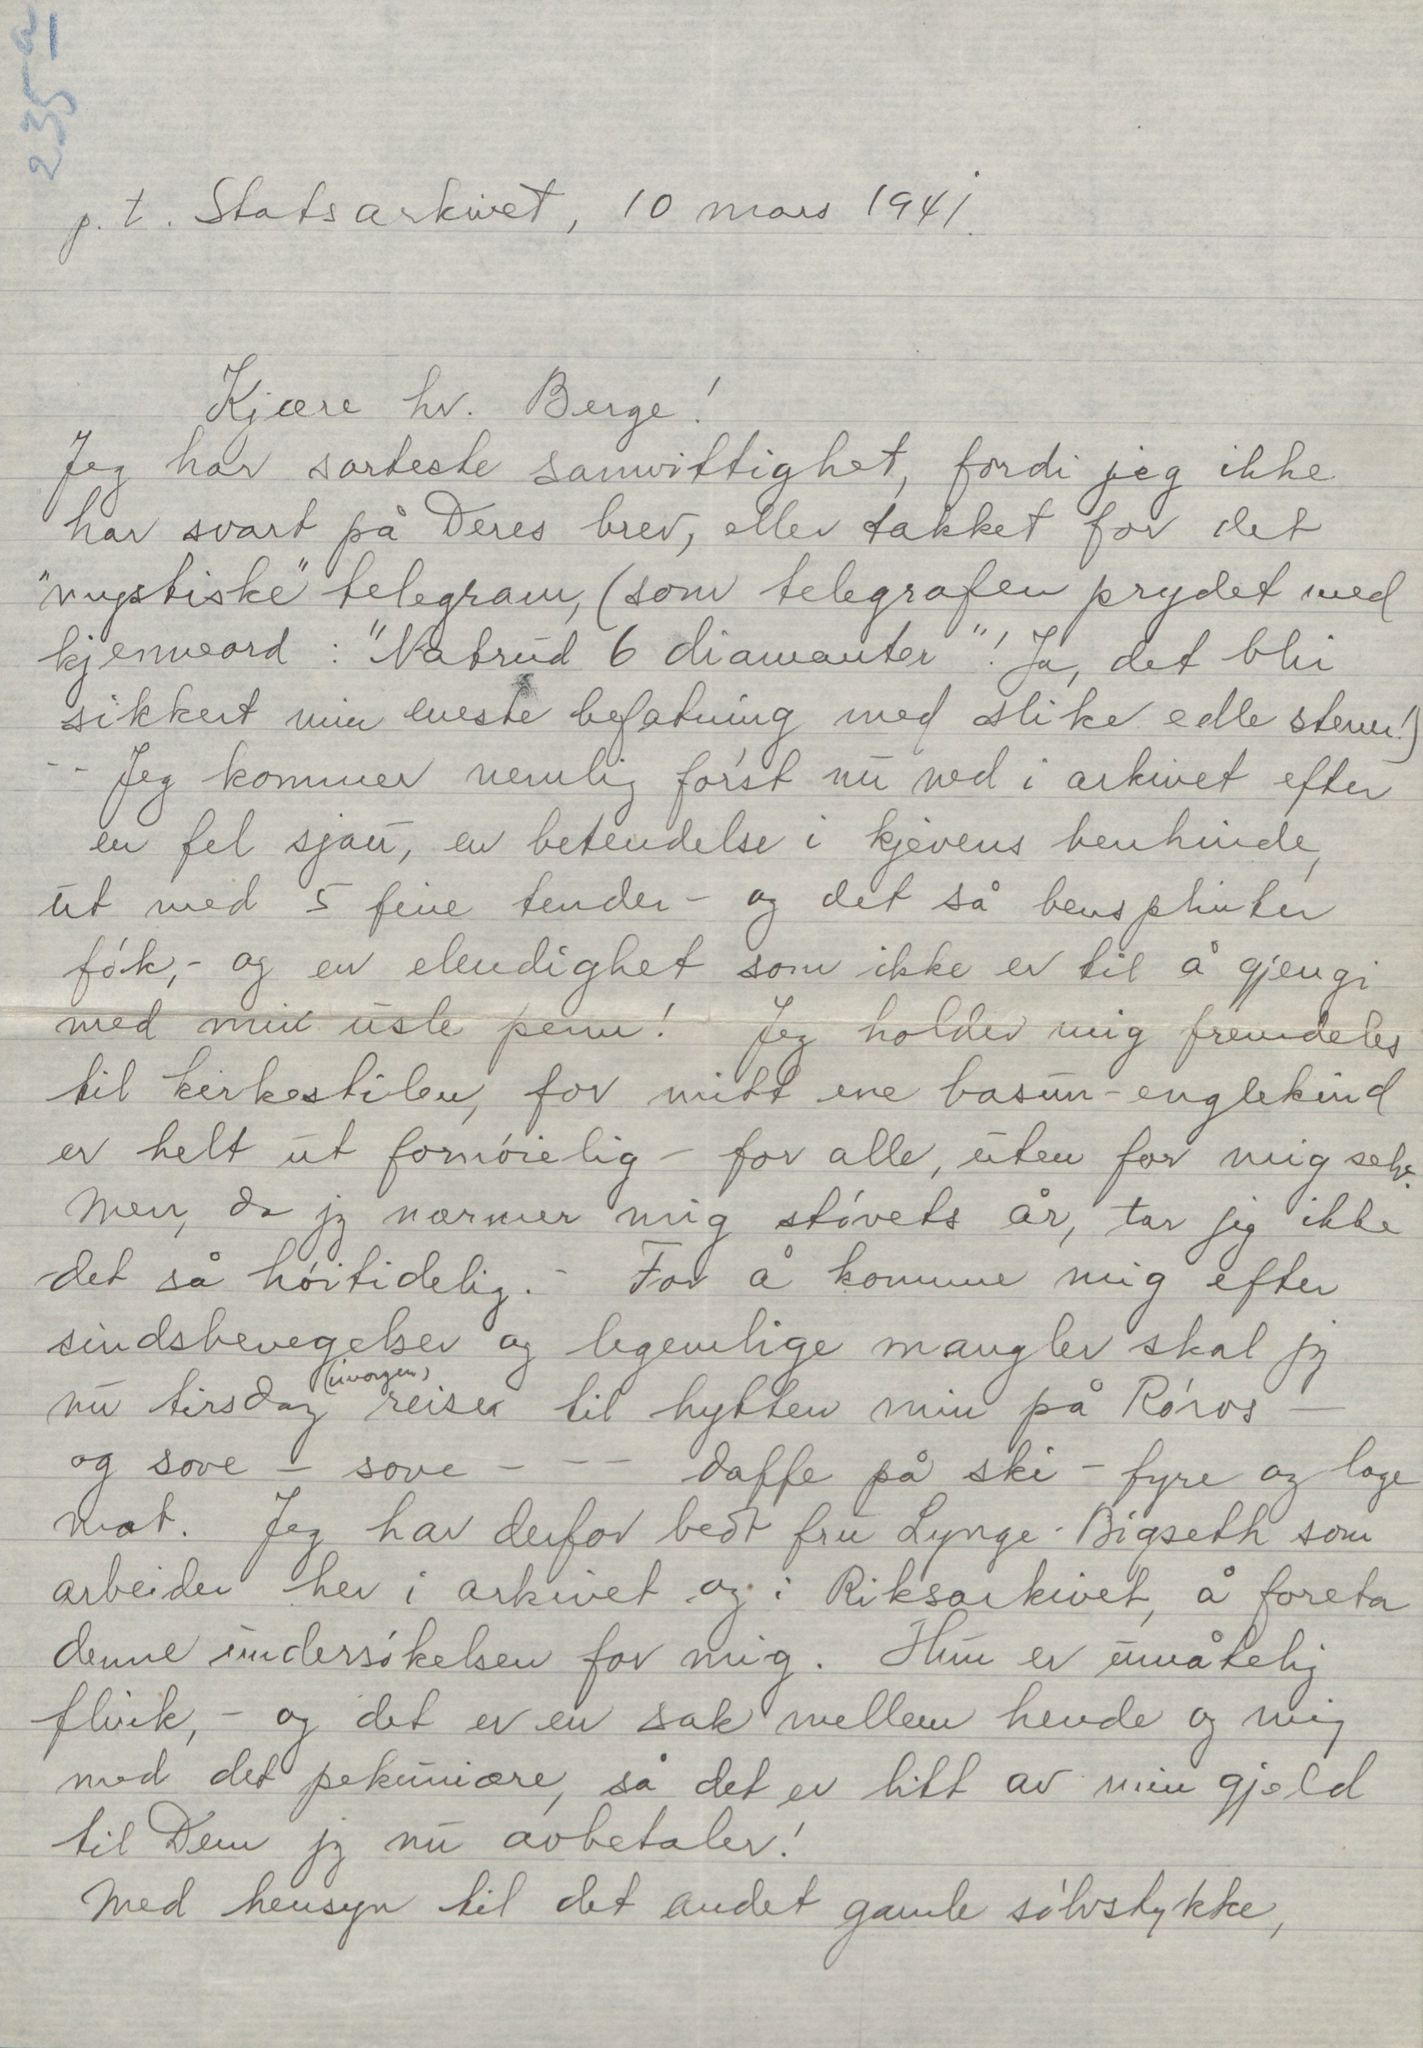 235 a
p. t. Statsarkivet, 10 mars 1941.
Kjære hr. Berge!
Jeg har sorteste samvittighet, fordi jeg ikke
har svart på Deres brev, eller takket for det
"mystiske" telegram, (som telegrafen prydet med
kjenneord : "Natrud 6 diamanter"! Ja, det blir
sikkert min eneste befatning med slike edle stener!)
-- Jeg kommer nemlig først nu ned i arkivet efter
en fel sjau, en betendelse i kjevens benhinde,
ut med 5 fine tender - og det så bensplinter
føk, - og en elendighet som ikke er til å gjengi
med min usle penn! Jeg holder mig fremdeles
til kirkestilen, for mitt ene basun-englekind
er helt ut fornøielig - for alle, uten for mig selv.
Men, da jg nærmer mig støvets år, tar jeg ikke
det så høitidelig. - For å komme mig efter
sindsbevegelser og legemlige mangler skal jg
nu tirsdag (imorgen) reise til hytten min på Røros -
og sove - sove - - - daffe på ski - fyre og lage
mat. Jeg har derfor bedt fru Lynge-Bigseth som
arbeider her i arkivet og i Riksarkivet, å foreta
denne undersøkelsen for mig. Hun er umåtelig
flink, - og det er en sak mellem hende og mig
med det pekuniære, så det er litt av min gjeld
til Dem jg nu avbetaler!
Med hensyn til det andet gamle sølvstykke,